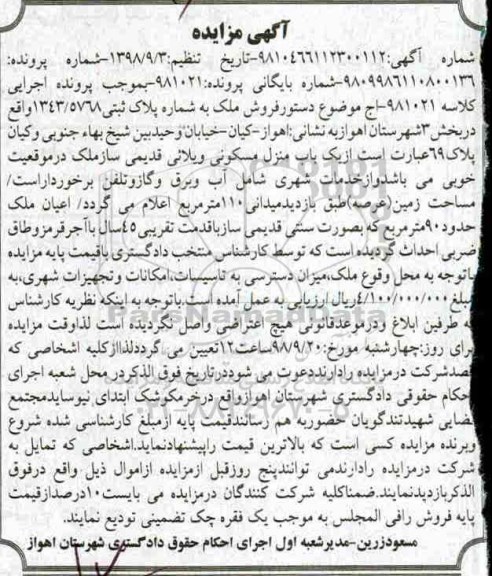 آگهی مزایده
شماره آگهی:۹۸۱۰۴۶۶۱۱۲۳۰۰۱۱۲-تاریخ تنظیم:۱۳۹۸/۹/۳-شماره پرونده:
۹۸۰۹۹۸۶۱۱۰۸۰۰۱۳۶-شماره بایگانی پرونده:۹۸۱۰۲۱-بموجب پرونده اجرایی
کلاسه ۹۸۱۰۲۱-اج موضوع دستورفروش ملک به شماره پلاک ثبتی۱۳۴۳/۵۷۶۸واقع
دربخش۳شهرستان اهوازبه نشانی:اهواز-کیان-خیابان وحیدبین شیخ بهاء جنوبی وکیان
پلاک۶۹عبارت است ازیک باب منزل مسکونی ویلائی قدیمی سازملک درموقعیت
خوبی می باشدوازخدمات شهری شامل آب وبرق وگازوتلفن برخورداراست/
مساحت زمین(عرصه)طبق بازدیدمیدانی۱۱۰مترمربع اعلام می گردد/ اعیان ملک
حدود۹۰مترمربع که بصورت سنتی قدیمی سازباقدمت تقریبی۴۵سال باآجرقرمزوطاق
ضربی احداث گردیده است که توسط کارشناس منتخب دادگستری باقیمت پایه مزایده
باتوجه به محل وقوع ملک،میزان دسترسی به تاسیسات،امکانات وتجهیزات شهری،به
مبلغ۴/۱۰۰/۰۰۰/۰۰۰ریال ارزیابی به عمل آمده است.باتوجه به اینکه نظریه کارشناس
به طرفین ابلاغ ودرموعدقانونی هیچ اعتراضی واصل نگردیده است لذاوقت مزایده
برای روز:چهارشنبه مورخ:۹۸/۹/۲۰ساعت۱۲تعیین می گرددلذاازکلیه اشخاصی که
قصدشرکت درمزایده رادارنددعوت می شوددرتاریخ فوق الذکردر محل شعبه اجرای
احکام حقوقی دادگستری شهرستان اهوازواقع درخرمکوشک ابتدای نیوسایدمجتمع
قضایی شهیدتندگویان حضوربه هم رسانندقیمت پایه ازمبلغ کارشناسی شده شروع
وبرنده مزایده کسی است که بالاترین قیمت راپیشنهادنماید.اشخاصی که تمایل به
شرکت درمزایده رادارندمی توانندپنج روزقبل ازمزایده ازاموال ذیل واقع درفوق
الذکربازدیدنمایند.ضمناکلیه شرکت کنندگان درمزایده می بایست۱۰درصدازقیمت
پایه فروش رافی المجلس به موجب یک فقره چک تضمینی تودیع نمایند.
مسعودزرین-مدیرشعبه اول اجرای احکام حقوق دادگستری شهرستان اهواز
ParsNamadData